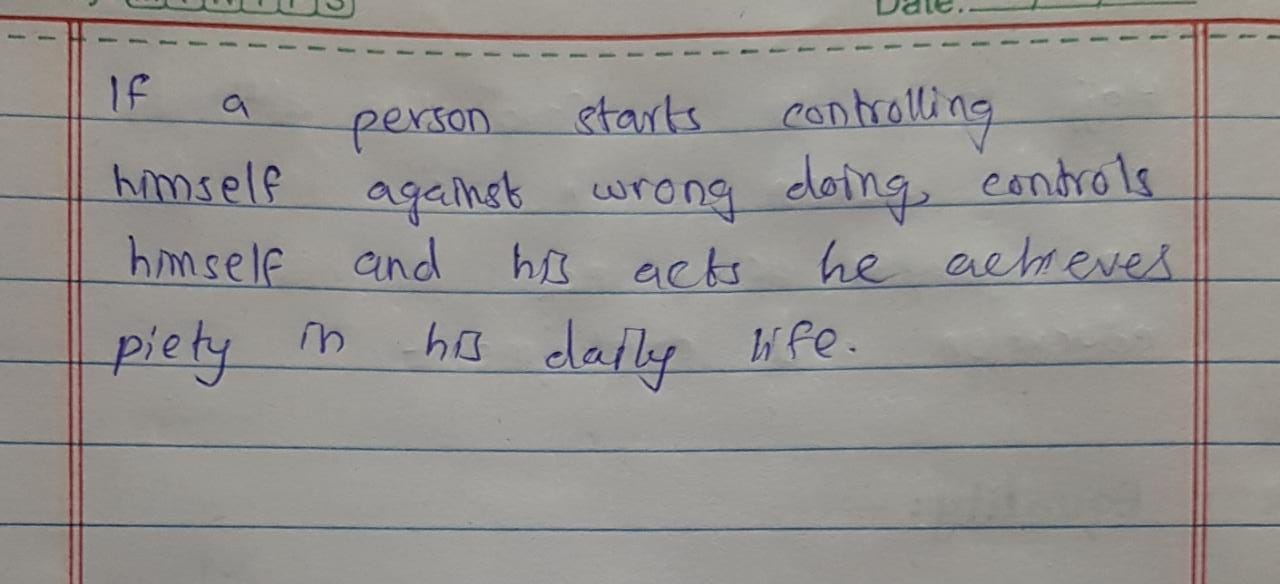 Date:
If a person starts controlling
himself against wrong doing, controls
himself and his acts he achieves
piety in his daily life.